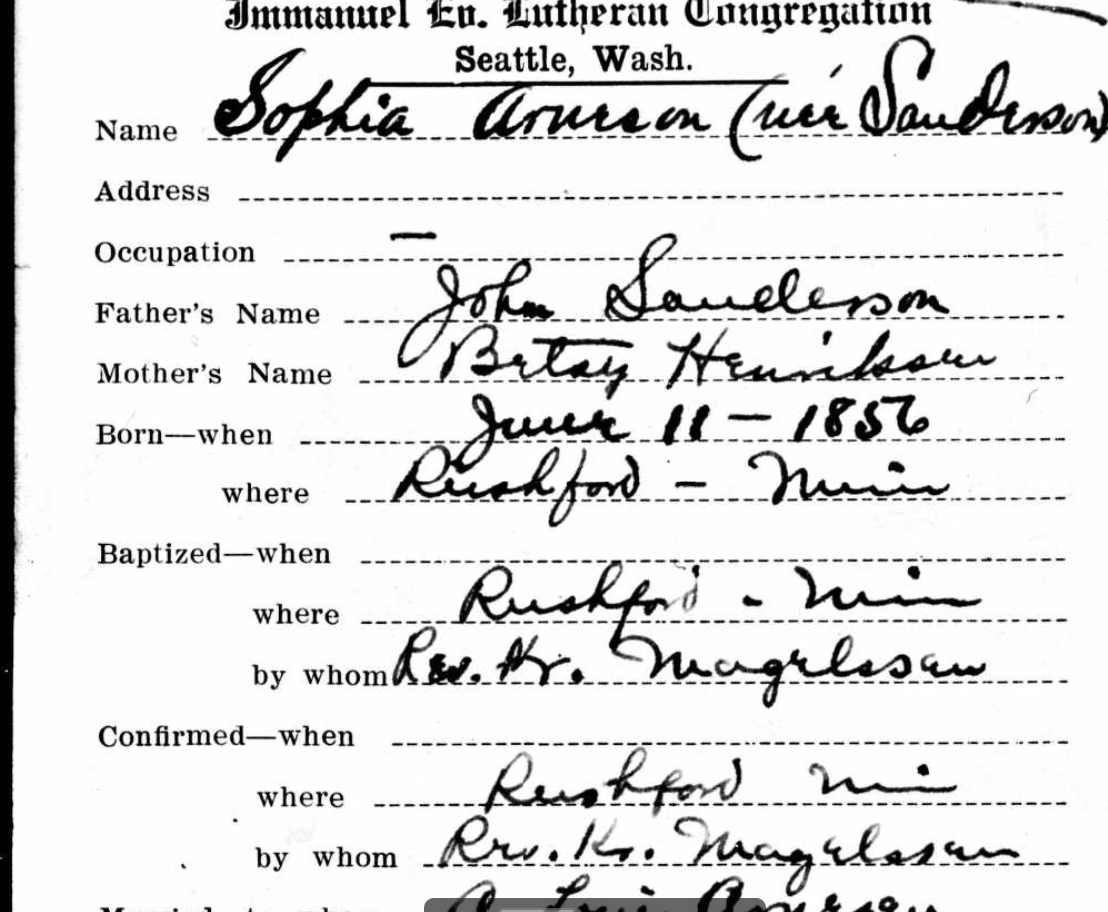 Immanuel Ev. Lutheran Congregation
Seattle, Wash.
Name Sophia Arneson (neé Sanderson)
Address
Occupation —
Father's Name John Sanderson
Mother's Name Betsy Henriksen
Born—when June 11 — 1856
where Rushford — Minn
Baptized—when
where Rushford - Minn
by whom Rev. Kr. Magelssen
Confirmed—when
where Rushford Minn
by whom Rev. Kr. Magelssen